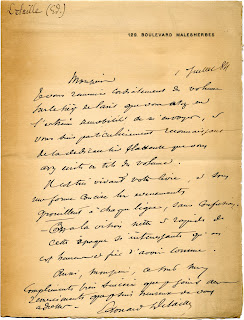 Detaille (Ed.)
129 BOULEVARD MALESHERBES
Juillet 84
Monsieur
Je vous remercie cordialement du volume
que vous avez eu
l'extrême amabilité de m'envoyer, et
vous suis particulièrement reconnaissant
de la dédicace flatteuse que vous
avez écrite en tête du volume.
Il est vivant votre livre, et sous
une forme concise les événements
fourmillent à chaque ligne, sans confusion.
vision nette et rapide de
cette époque si intéressante qu'on
est heureux et fier d'avoir connue.
Aussi, Monsieur, ce sont mes
compliments très sincères que je joins aux
remerciements que je suis heureux de vous
adresser.
Edouard Detaille